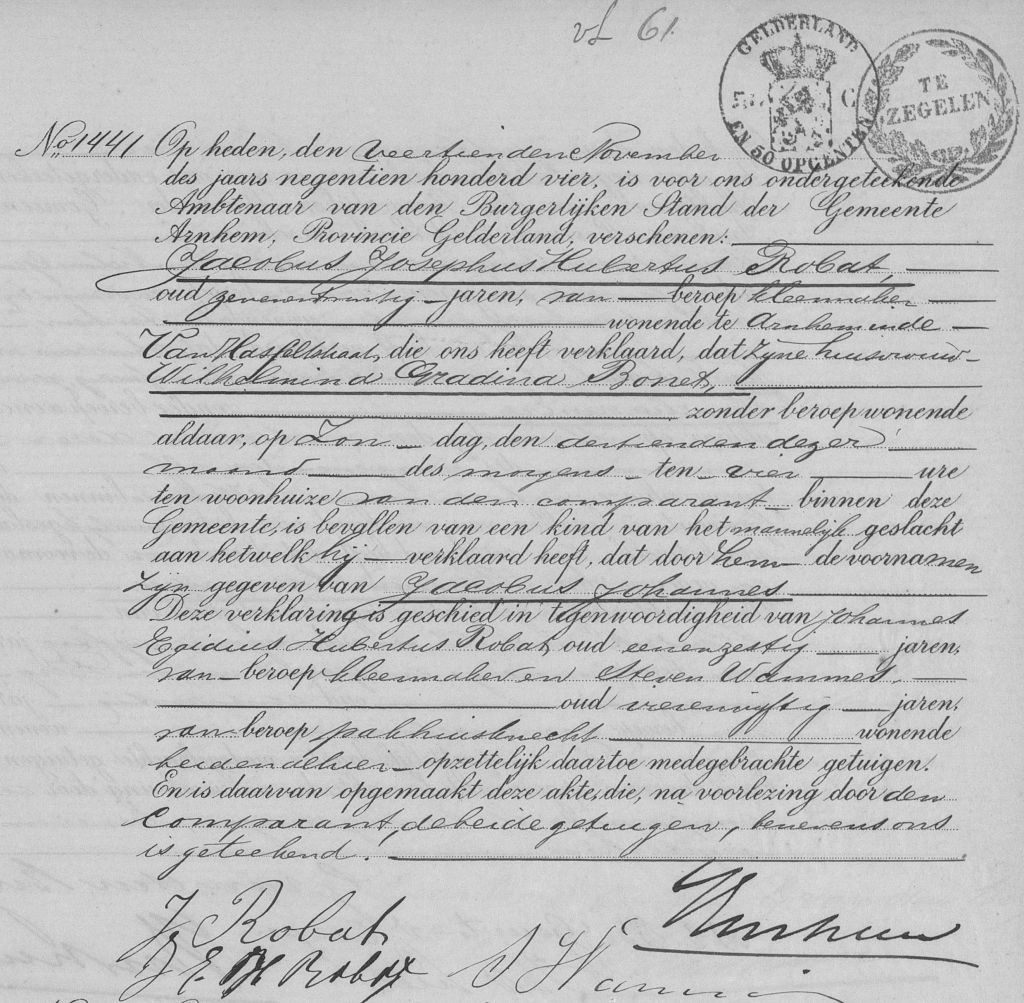 vL 61.
GELDERLAND
EN 50 OPCENTEN
TE
ZEGELEN
No 1441 Op heden, den veertienden November
des jaars negentien honderd vier, is voor ons ondergeteekende
Ambtenaar van den Burgerlijken Stand der Gemeente
Arnhem, Provincie Gelderland, verschenen:
Jacobus Josephus Hubertus Robat,
oud zevenentwintig jaren, van beroep kleermaker
wonende te Arnhem in de
Van Hasseltstraat, die ons heeft verklaard, dat zijne huisvrouw
Wilhelmina Gradina Bonet,
zonder beroep wonende
aldaar, op Zon dag, den dertienden dezer
maand des morgens ten vier ure
ten woonhuize van den comparant binnen deze
Gemeente, is bevallen van een kind van het mannelijk geslacht
aan hetwelk hij verklaard heeft, dat door hem de voornamen
zijn gegeven van Jacobus Johannes
Deze verklaring is geschied in tegenwoordigheid van Johannes
Egidius Hubertus Robat, oud eenenzestig jaren,
van beroep kleermaker en Steven Wammes,
oud vierenvijftig jaren,
van beroep pakhuisknecht wonende
beiden alhier opzettelijk daartoe medegebrachte getuigen.
En is daarvan opgemaakt deze akte, die, na voorlezing door den
comparant, de beide getuigen, benevens ons
is geteekend.
Robat
J. E. H Robat